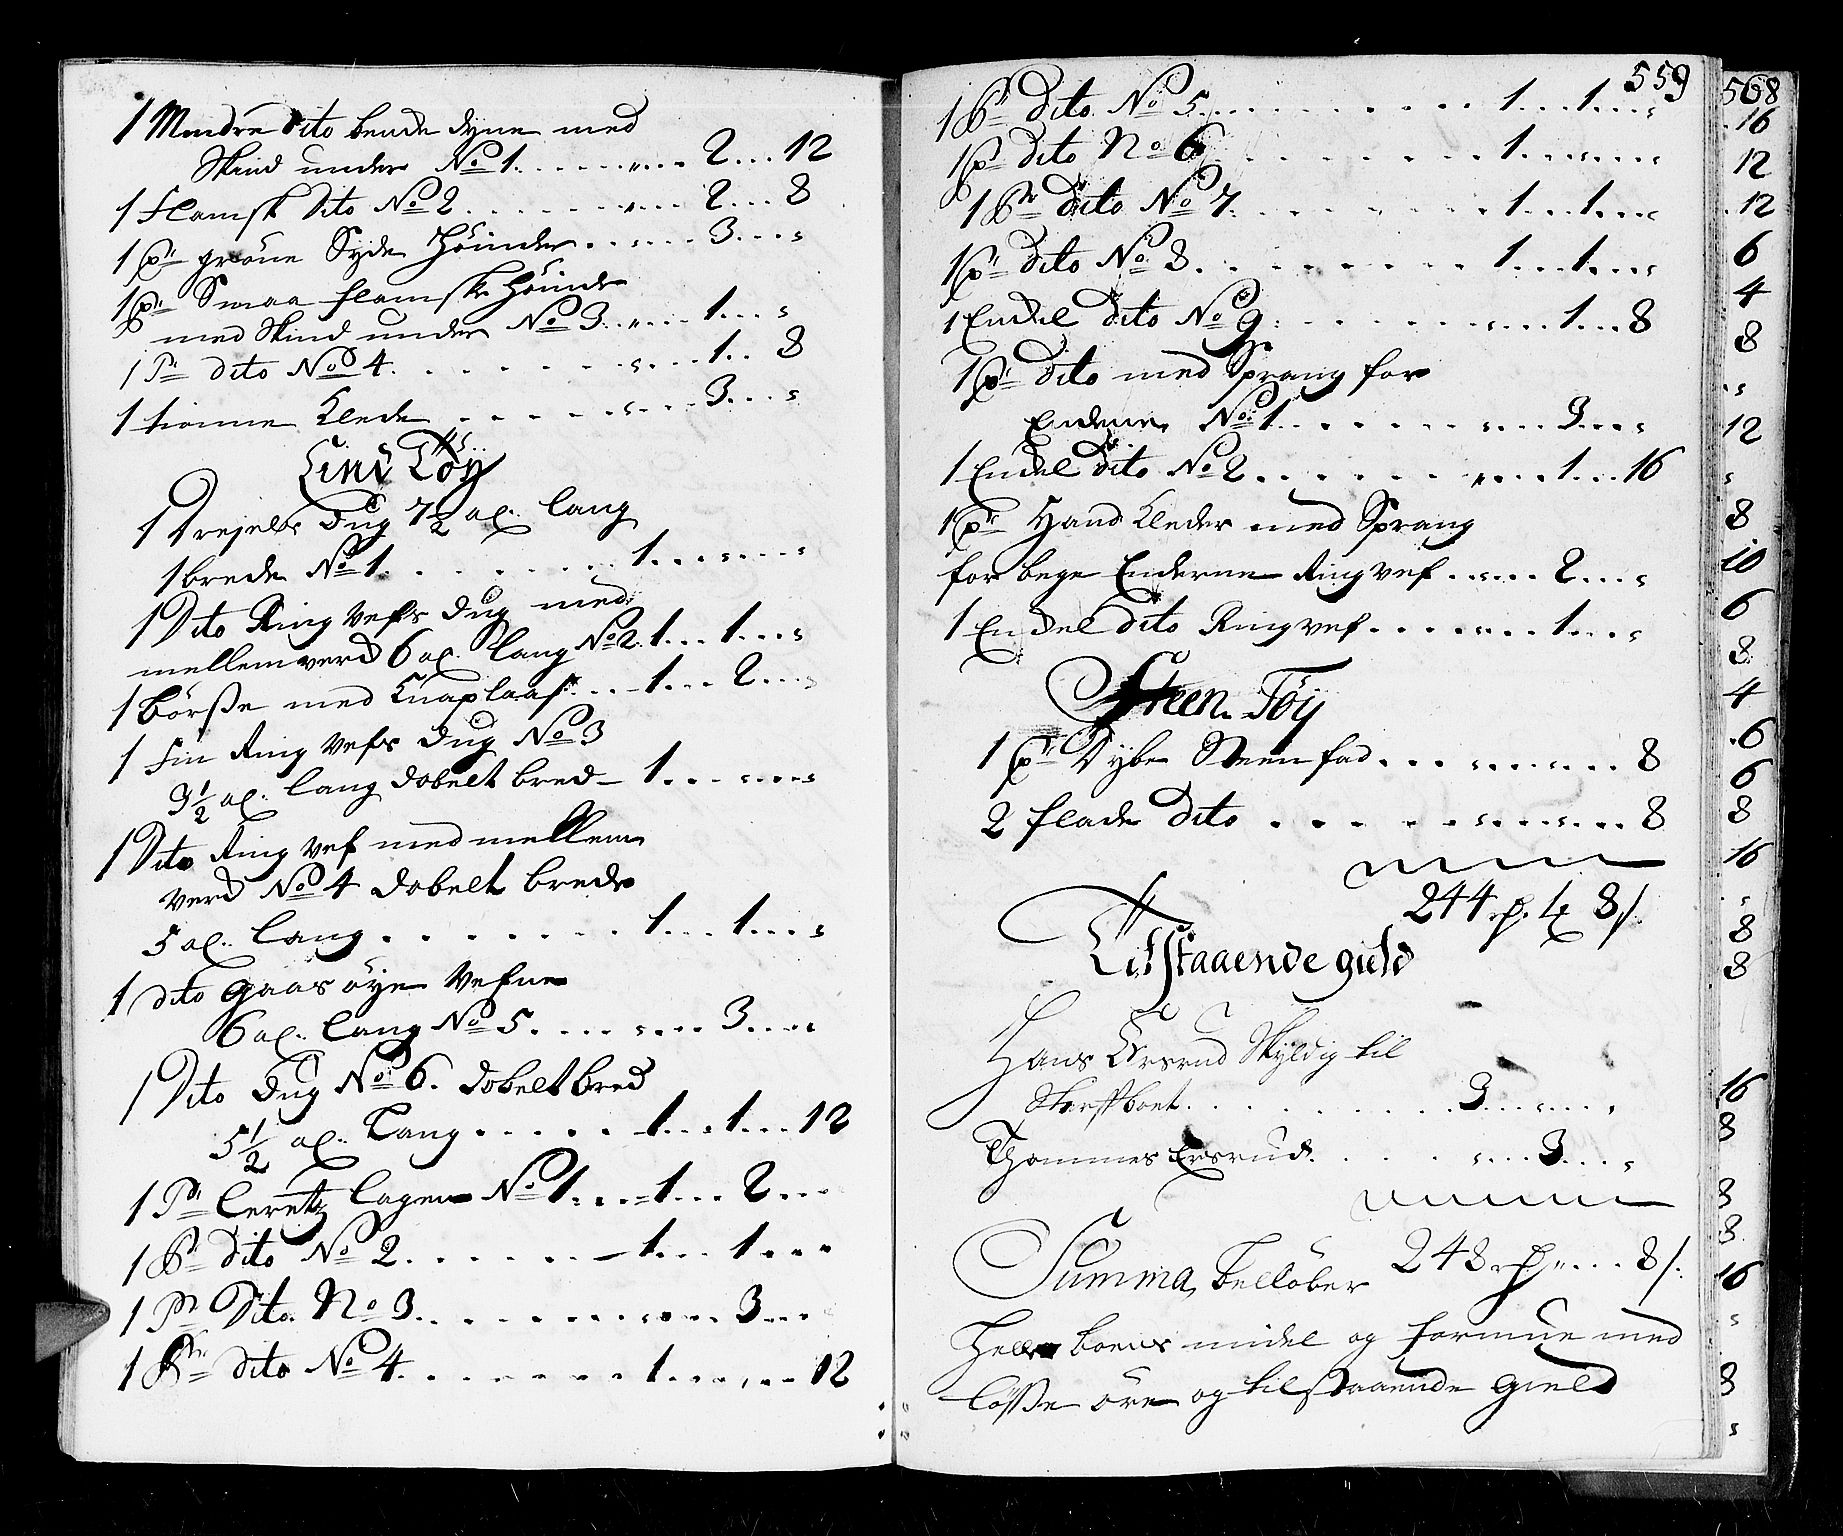 1 Mindre dito bencke dyne med
Skind under No 1 . . . . . „ . . . 2 . . . 12
1 Flamsk Dito No 2 . . . . . . . „ . . . 2 . . . 8
1 Pr grøne Syde Høinder . . . . . . 3 . . . s
1 Pr Smaa flamske Høinde
med Skind under No 3 . . „ . . . 1 . . . s
1 Pr dito No 4 . . . . . . . s . . . 1 . . 8
1 tionne Klede . . . . . . s . . . 3 . . . s
Lind Tøy
1 Drejels Dug 7 1/2 al. lang
1 brede No 1 . . . . . . . . 1 . . . s . . . s
1 Dito Ring Vefs Dug med
mellemverd 6 al. lang No 2 . 1 . . . 1 . . . s
1 Børsse med Knaplaas . . . 1 . . . 2 . . . s
1 Fin Ring Vefs Dug No 3
3 1/2 al. lang dobelt bred – 1 . . . s . . . s
1 Dito Ring Vef med mellem
verd No 4 dobelt brede
5 al. lang . . . . . . . . 1 . . . 1 . . . s
1 dito gaas øye Vefne
6 al. lang No 5 . . . . s . . . 3 . . . s
1 Dito Dug No 6. dobelt bred
5 1/2 al. Lang . . . . . 1 . . . 1 . . . 12
1 Pr Lerets Lagen No 1 . . . 1 . . . 2 . . .
1 Pr dito No 2 . . . . . . 1 . . . 1 . . . s
1 Pr Dito No 3 . . . . . . . s . . . 3 . . .
1 Pr dito No 4 . . . . . . . 1 . . . s . . . 12
559
1 Pr dito No 5 . . . . . . . . 1 . . . 1 . . . s
1 Pr dito No 6 . . . . . . . . 1 . . . s . . . s
1 Pr dito No 7 . . . . . . . . 1 . . . 1 . . . s
1 Pr dito No 8 . . . . . . . . 1 . . . 1 . . . s
1 Enckel dito No 9 . . . . . . . s . . . 1 . . . 8
1 Pr dito med Sprang for
Enderne No 1 . . . . . . s . . . 3 . . . s
1 Enckel dito No 2 . . . . . . „ . . . 1 . . . 16
1 Pr Hand Kleder med Sprang
for bege Enderne Ring vef . . s . . . 2 . . . s
1 Enckel dito Ringvef . . . . s . . . 1 . . . s
Steen Tøy
1 Pr Dybe Steenfad . . . s . . . s . . . 8
2 flade dito . . . . . s . . . s . . . 8
244 rd. 1 8 s.
Tilstaaende gield
Hans Ersrud Skyldig til
Sterfboet . . . . . . . . . 3 . . . s . . . s
Thommes Ersrud . . . . . s . . . 3 . . . s
Summa, belløber 248 rd „ . . . 8 s.
Heele boens midel og formue med
løsse øre og tilstaaende gield
568
16
12
12
6
4
8
s
12
s
8
10
6
8
4
6
6
8
16
s
8
8
16
8
8
8
16
s
8
s